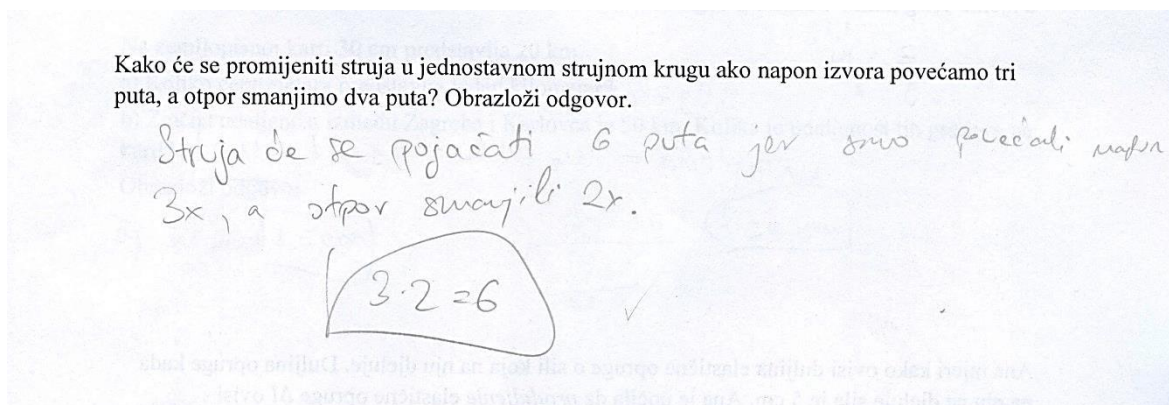 Kako će se promijeniti struja u jednostavnom strujnom krugu ako napon izvora povećamo tri
puta, a otpor smanjimo dva puta? Obrazloži odgovor.
Struja će se pojačati 6 puta jer smo povećali napon
3x, a otpor smanjili 2x.
3·2=6